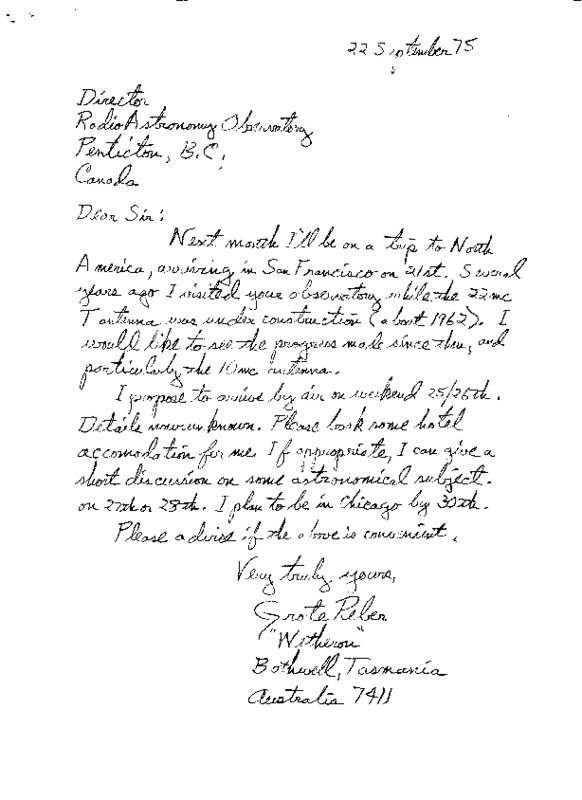 22 September 75
Director
Radio Astronomy Observatory
Penticton, B.C.
Canada
Dear Sir:
Next month I'll be on a trip to North
America, arriving in San Francisco on 21st. Several
years ago I visited your observatory while the 22 mc
T antenna was under construction (about 1962). I
would like to see the progress made since then, and
particularly the 10 mc antenna.
I propose to arrive by air on weekend 25/26th.
Details now unknown. Please book some hotel
accomodation for me. If appropriate, I can give a
short discussion on some astronomical subject.
on 27th or 28th. I plan to be in Chicago by 30th.
Please advise if the above is convenient.
Very truly yours,
Grote Reber
Bothwell, Tasmania
Australia 7411